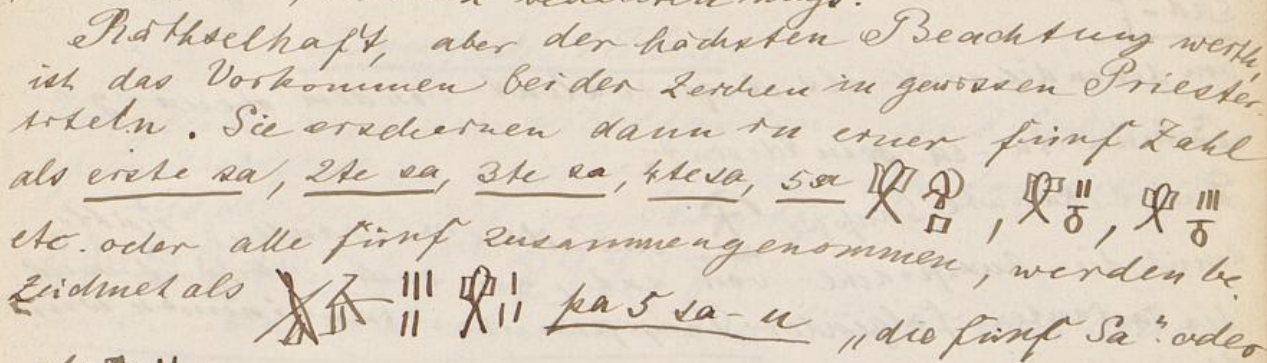 Räthselhaft, aber der höchsten Beachtung werth,
ist das Vorkommen beider Zeichen in gewissen Priester-
titeln. Sie erscheinen dann in einer fünf Zahl
als erste sa, 2te sa, 3te sa, 4te sa, 5 sa , ,
etc. oder alle fünf zusammengenommen, werden be-
zeichnet als pa 5 sa-u „die fünf Sa" oder